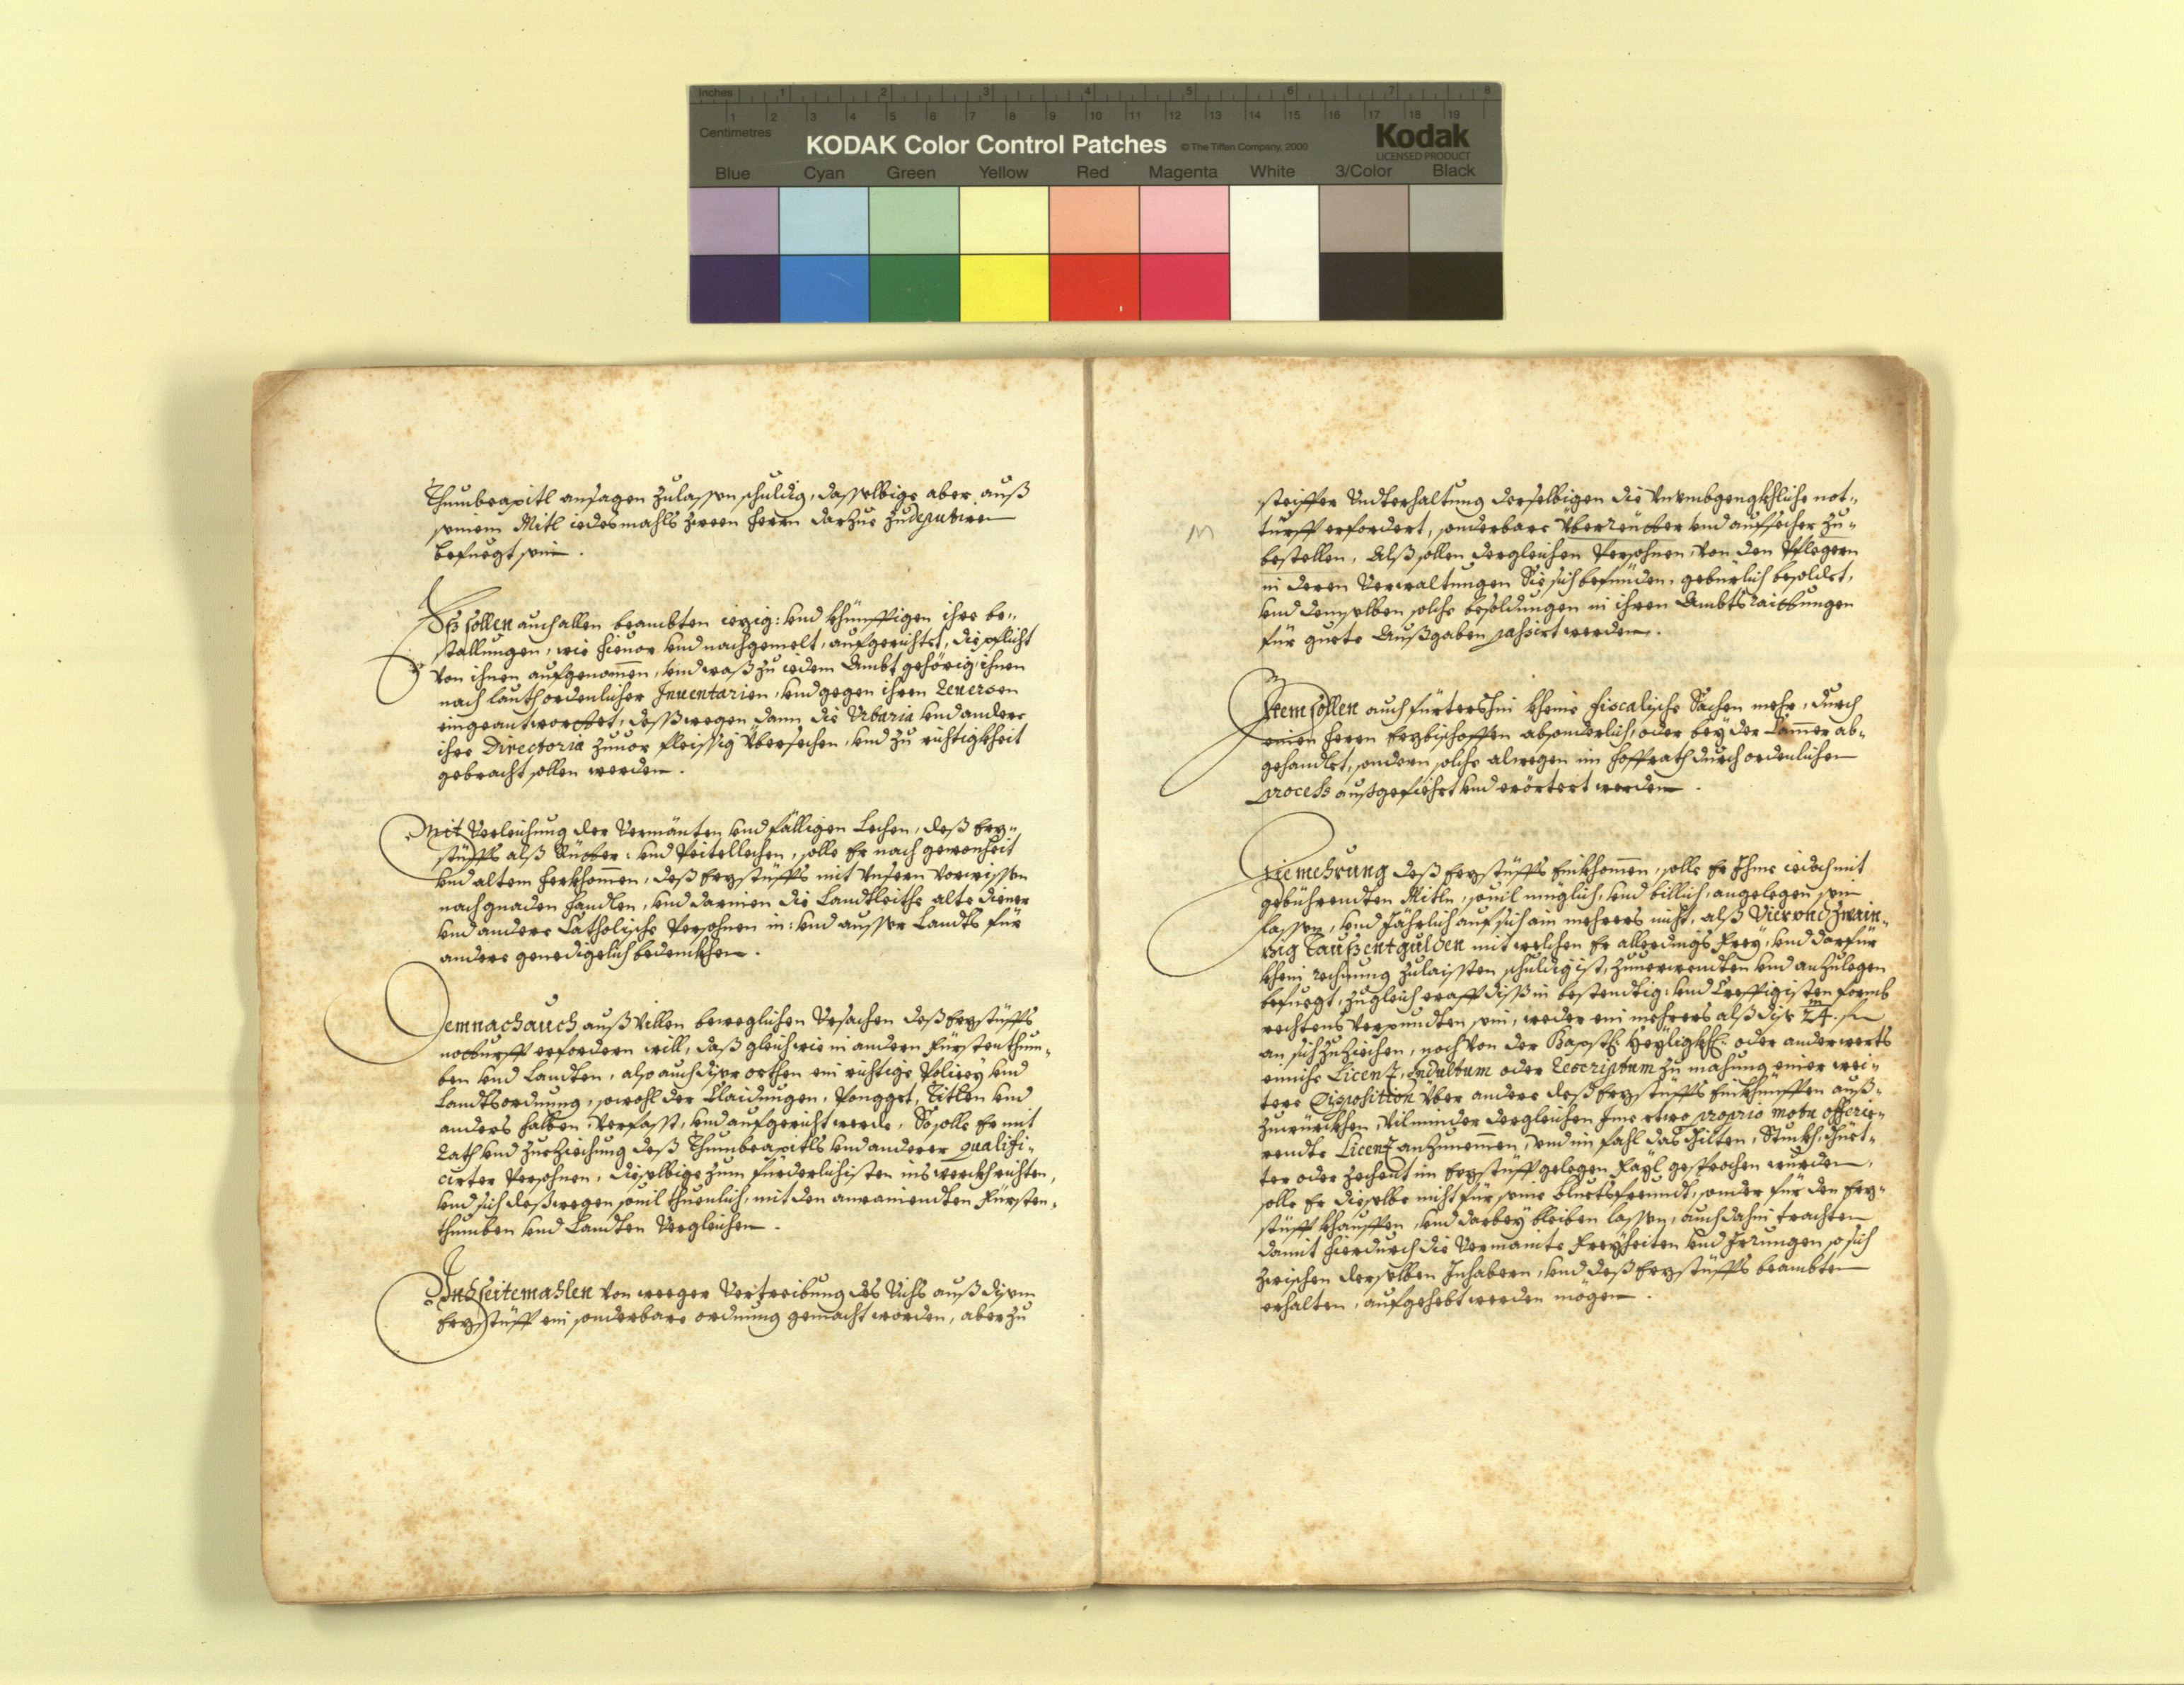 Inches 1 2 3 4 5 6 7 8
Centimetres 1 2 3 4 5 6 7 8 9 10 11 12 13 14 15 16 17 18 19
KODAK Color Control Patches © The Tiffen Company, 2000 Kodak
LICENSED PRODUCT
Blue Cyan Green Yellow Red Magenta White 3/Color Black
Thumbcapitl ansagen zulassen schuldig, dasselbige aber auß
seinem Mitl iedesmahls zween herrn darzue zu deputiren
befuegt sein.
Es sollen auch allen beambten ieztig: vnd khünfftigen ihre be-
stallungen, wie hieuor vnd nachgemelt, aufgerichtet, die pflicht
von ihnen aufgenommen, vnd waß zu iedem Ambt gehörig, ihnen
nach lauth ordenlicher Inuentarien, vnd gegen ihren Reuersen
eingeantworttet, deßwegen dann die Vrbaria vnd andere
ihre Directoria zuuor fleissig übersechen, vnd zu richtigkheit
gebracht sollen werden.
Mit Verleichung der Vermänten vnd fälligen Lechen, deß Erz-
stüffts alß Ritter: vnd Peitellechen, solle Er nach gewonheit
vnd altem herkhommen, deß Erzstüffts mit vnsern vorwissen
nach gnaden handlen, vnd darinnen die Landtleithe alte diener
vnd andere Catholische Persohnen in: vnd ausser Landts für
andere genedigelich bedenckhen.
Demnach auch auß villen beweglichen Vrsachen deß Erzstüffts
notturfft erfordern will, daß gleich wie in andern Fürstenthum-
ben vnd Landten, also auch diser orthen ein richtige Policey vnd
Landtsordnung, sowohl der Claidungen, Pongget, Titlen vnd
anders halben, verfasst, vnd aufgericht werde, So solle Er mit
Rath vnd zueziechung deß Thumbcapitls vnd anderer qualifi-
cirter Persohnen, dieselbige zum fürderlichisten ins werckh richten,
vnd sich deßwegen souil thuenlich, mit den anrainendten Fürsten-
thumben vnd Landten Vergleichen.
Vnd seitemahlen von weegen Vertreibung des Vichs auß disem
Erzstüfft ein sonderbare ordnung gemacht worden, aber zu
M
steiffer Vndterhaltung derselbigen die Vnumbgengkhliche not-
turfft erfordert, sonderbare Überreütter vnd aufsecher zu-
bestellen, Alß sollen dergleichen Persohnen, von den Pflegern
in deren Verwaltungen Sie sich befünden, gebürlich besoldet,
vnd denselben solche besoldungen in ihren Ambtsraittungen
für guete Außgaben passirt werden.
Item sollen auch fürtershin kheine fiscalische Sachen mehr, durch
einen herrn Erzbischoffen absonderlich, oder bey der Cammer ab-
gehandlet, sondern solche alwegen im Hoffrath durch ordenlichen
process außgefiehrt vnd erörtert werden.
Die mehrung deß Erzstüffts Einkhommen, solle Er Ihme iedoch mit
gebührendten Mitln, souil müglich, vnd billich, angelegen sein
lassen, vnd Jährlich auf sich ain mehrers nicht, alß Vier vnd zwain-
zig Taußent gulden mit welchen Er allerdings Frey, vnd darfür
khein rechnung zulaissten schuldig ist, zuuerwendten vnd anzulegen
befuegt, zugleich crafft diß in bestendtig: vnd Creffigisten formb
rechtens verpundten sein, weder ein mehrers alß dise 24. m fl
an sich zuziechen, noch von der Bapstl: Heyligkh: oder anderwerts
einiche Licenz, Indultum oder Rescriptum zu machung einer wei-
tern Disposition über andere deß Erzstüffts Einkhünfften auß-
zuwürckhen, vilminder dergleichen Ime etwo proprio motu offeri-
rendte Licenz anzunemmen, vnd im fahl das Gülten, Stuckh, Güet-
ter oder zechent im Erzstüfft gelegen Fayl gesprochen wurden,
solle Er dieselbe nicht für seine Bluetsfreundt, sonder für den Erz-
stüfft khauffen, vnd darbey bleiben lassen, auch dahin trachten
damit hierdurch die Vermainte Freyheiten vnd Irrungen so sich
zwischen derselben Inhabern, vnd deß Erzstüffts beambten
erhalten, aufgehebt werden mögen.